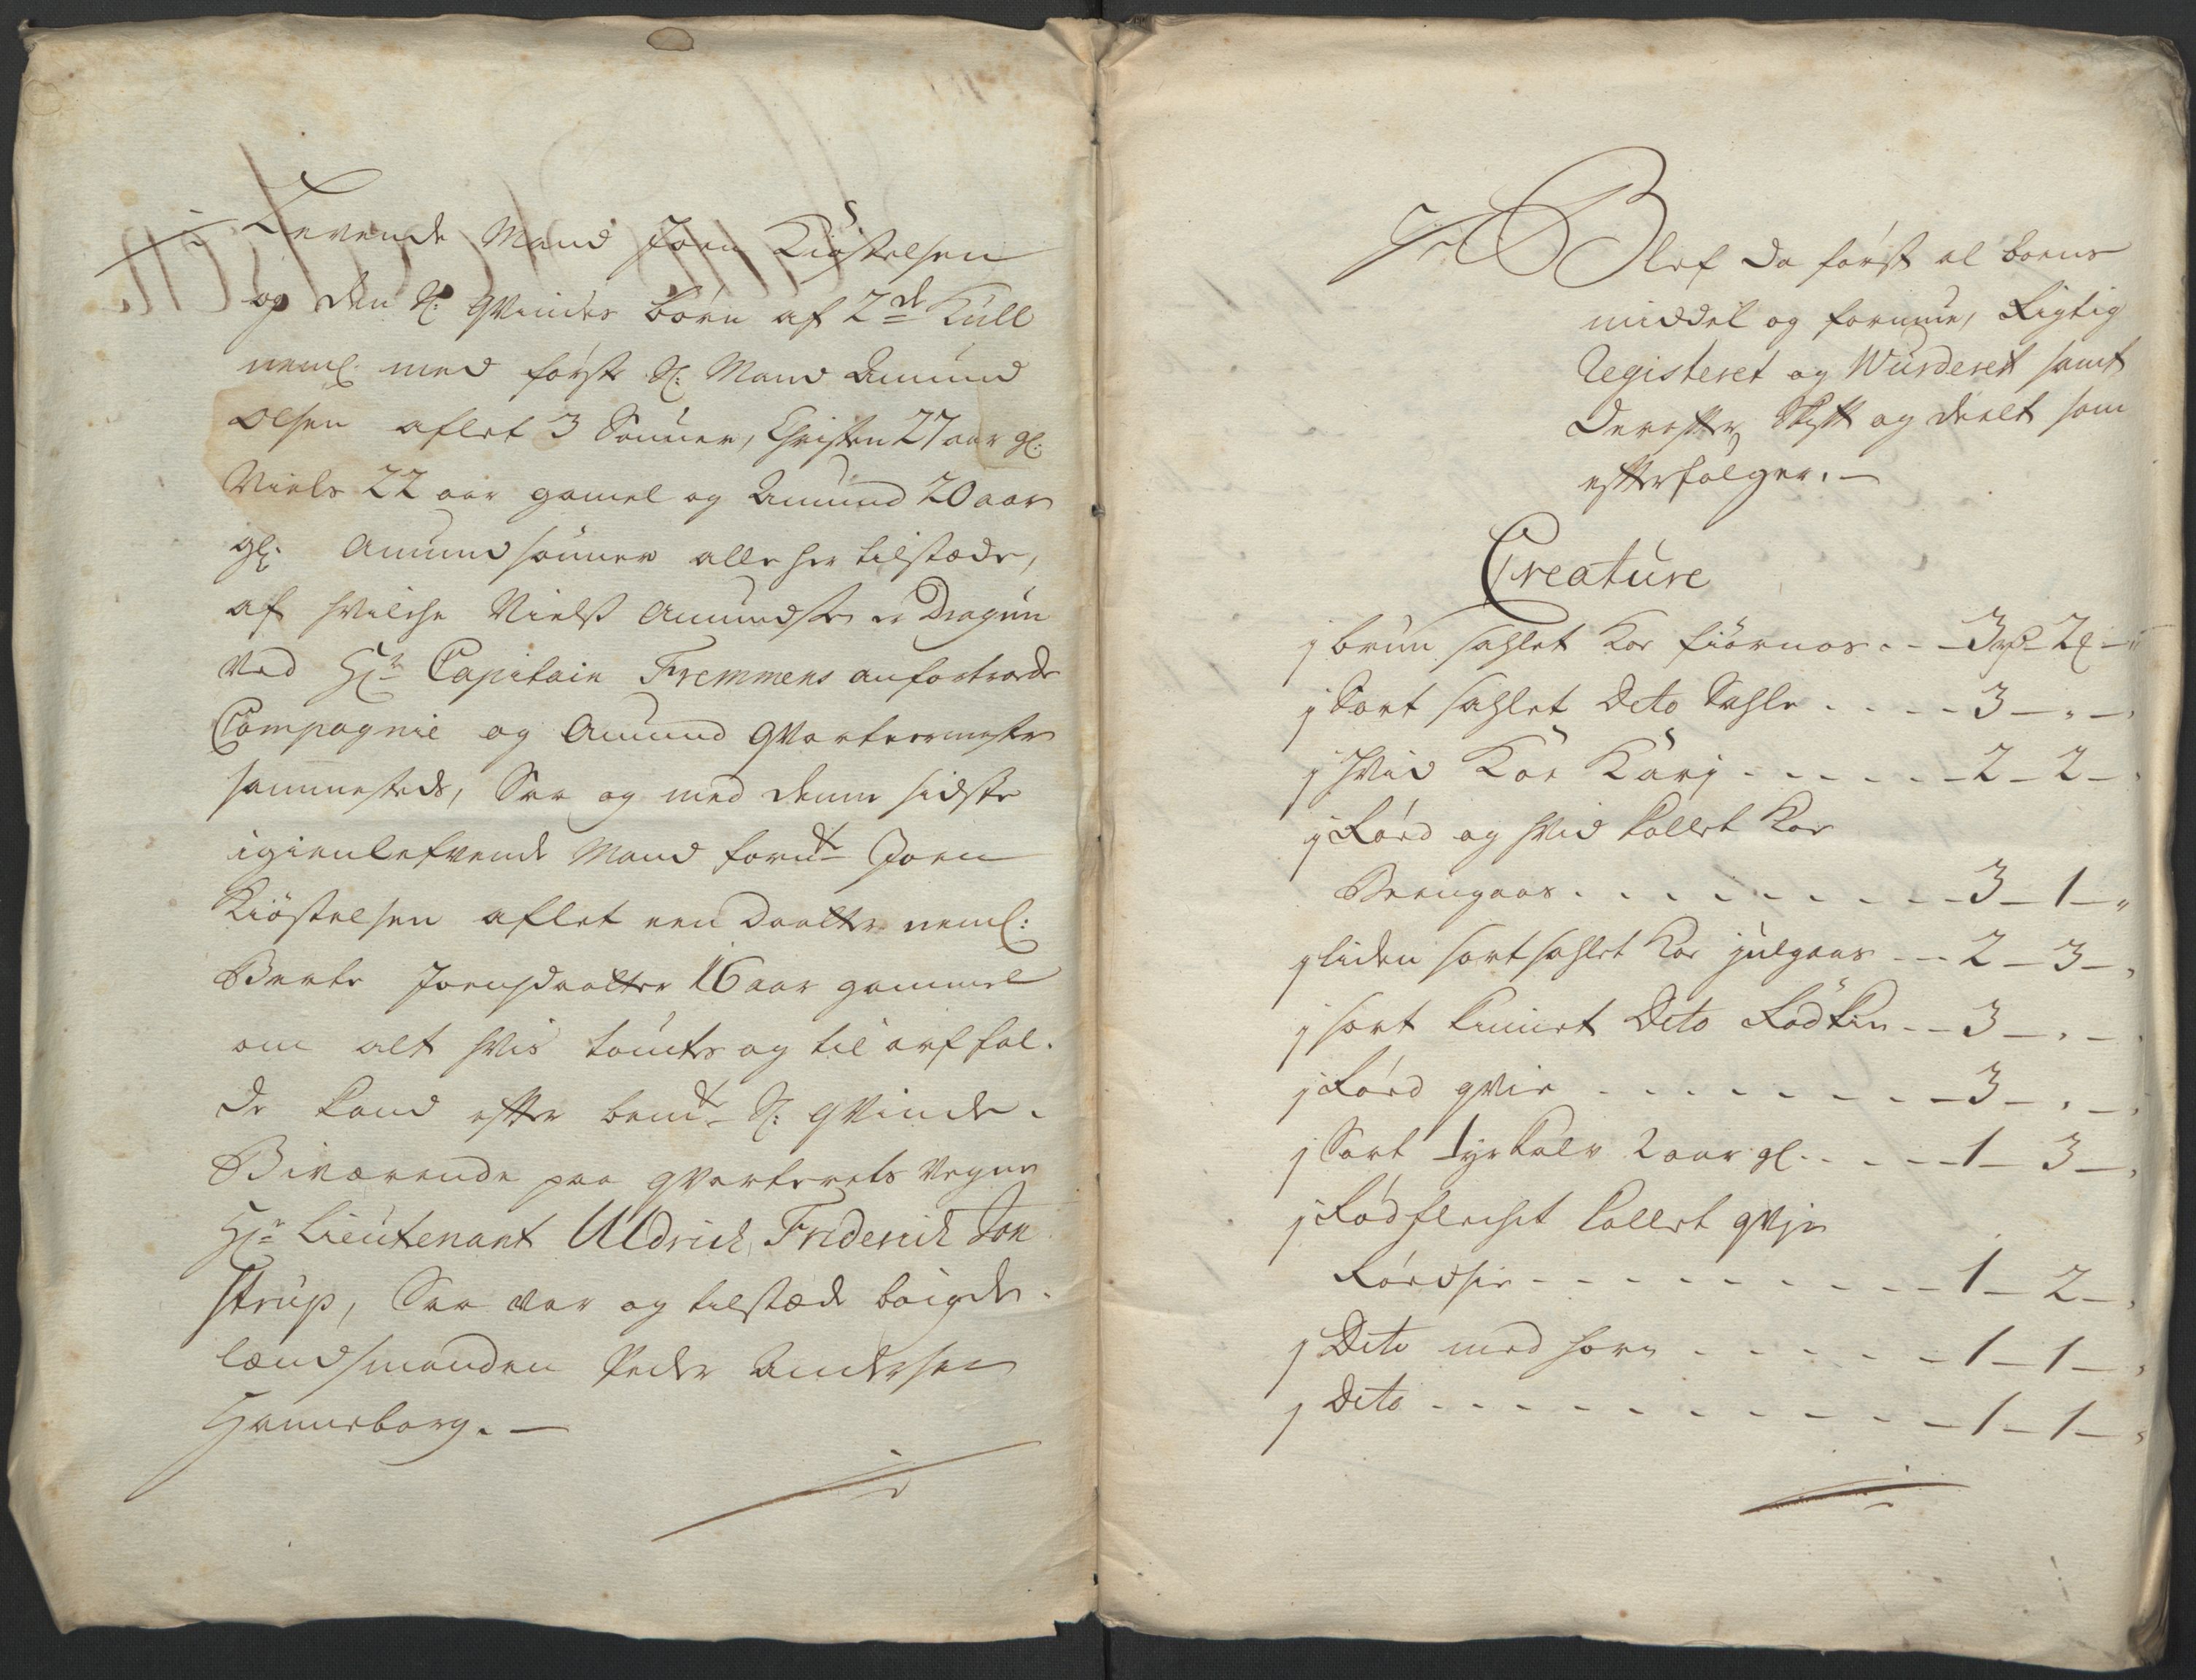 Levende Mand Joen Kiöstelsen
og den Sl: Qvindes börn af 2de Kull
neml. med förste Sl: Mand Amund
Olsen aflet 3 Sönner, Christen 27 aar gl:
Niels 22 aar gamel og Amund 20 aar
gl. Amundsönner alle her tilstæde,
af hvilche Niels Amundsen er Dragun
ved Hr Capitain Fremmens anfortroede
Compagnie og Amund Qvarteermester
sammesteds, Saa og med denne sidste
igienlefvende Mand fornt Joen
Kiöstelsen aflet een Daatter neml:
Berte Joensdaatter 16 aar gammel
om alt hvis tomtes og til arf fal-
de kand efter bemt Sl: Qvinde.
Biværende paa Qvarterets vegne
Hr Lieutenant Uldrich Friderich Ton
strup, Saa var og tilstæde böigde-
lændsmanden Peder Andersen
Hanneborg. —
Blef da först al boens
middel og formue, Rigtig
Registeret og Wurderet samt
derefter Skift og deelt som
efterfölger. —
Creature
j brun sahlet Koe fiörnos . . 3 rd 2 — "
j Sort sahlet Dito Sahle . . . . 3 — " —
j hvid Koe Kari . . . . . . 2 — 2 —
j Röed og hvid kollet Koe
Beengaas . . . . . . . . . 3 — 1 — "
j liden sort sahlet Koe julgaas . . 2 — 3 —
j sort kinnet Dito Rödkin . . 3 — " —
j Röed qvie . . . . . . . . 3 — " —
j Sort tyrkalv 2 aar gl. . . . . 1 — 3 —
j Röd flechet kollet qvje
Röedsie . . . . . . . . . 1 — 2 —
j Dito med horn . . . . . 1 — 1 —
j Dito . . . . . . . . . . 1 — 1 —